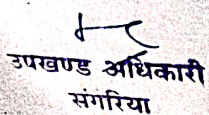 उपखण्ड अधिकारी
संगरिया